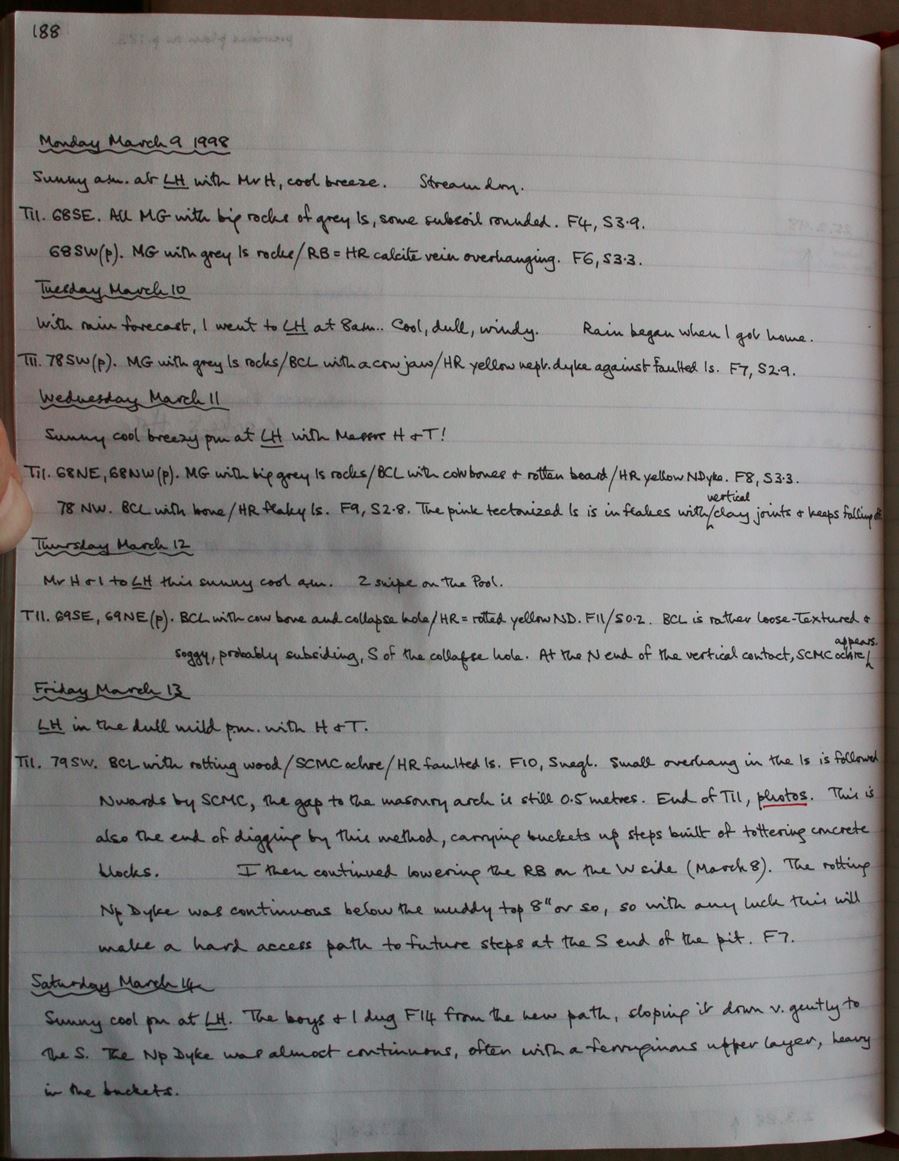 188
Monday March 9 1998
Sunny a.m. at LH with Mr H, cool breeze. Stream dry.
T11. 68SE. All MG with big rocks of grey ls, some subsoil rounded. F4, S3.9.
68SW(p). MG with grey ls rocks/RB = HR calcite vein overhanging. F6, S3.3.
Tuesday March 10
With rain forecast, I went to LH at 8am.. Cool, dull, windy. Rain began when I got home.
T11. 78SW(p). MG with grey ls rocks/BCL with a cow jaw/HR yellow nept. dyke against faulted ls. F7, S2.9.
Wednesday March 11
Sunny cool breezy pm at LH with Messrs H & T!
T11. 68NE, 68NW(p). MG with big grey ls rocks/BCL with cow bones & rotten board/HR yellow NDyke. F8, S3.3.
78 NW. BCL with bone/HR flaky ls. F9, S2.8. The pink tectonized ls is in flakes with vertical clay joints & keeps falling off
Thursday March 12
Mr H & I to LH this sunny cool a.m. 2 snipe on the Pool.
T11. 69SE, 69NE(p). BCL with cow bone and collapse hole/HR = rotted yellow ND. F11/S0.2. BCL is rather loose-textured &
soggy, probably subsiding, S of the collapse hole. At the N end of the vertical contact, SCMC ochre appears.
Friday March 13
LH in the dull mild p.m. with H & T.
T11. 79SW. BCL with rotting wood/SCMC ochre/HR faulted ls. F10, Snegl. Small overhang in the ls is followed
Nwards by SCMC, the gap to the masonry arch is still 0.5 metres. End of T11, photos. This is
also the end of digging by this method, carrying buckets up steps built of tottering concrete
blocks. I then continued lowering the RB on the W side (March 8). The rotting
Np Dyke was continuous below the muddy top 8" or so, so with any luck this will
make a hard access path to future steps at the S end of the pit. F7.
Saturday March 14
Sunny cool pm at LH. The boys & I dug F14 from the new path, sloping it down v. gently to
the S. The Np Dyke was almost continuous, often with a ferruginous upper layer, heavy
in the buckets.